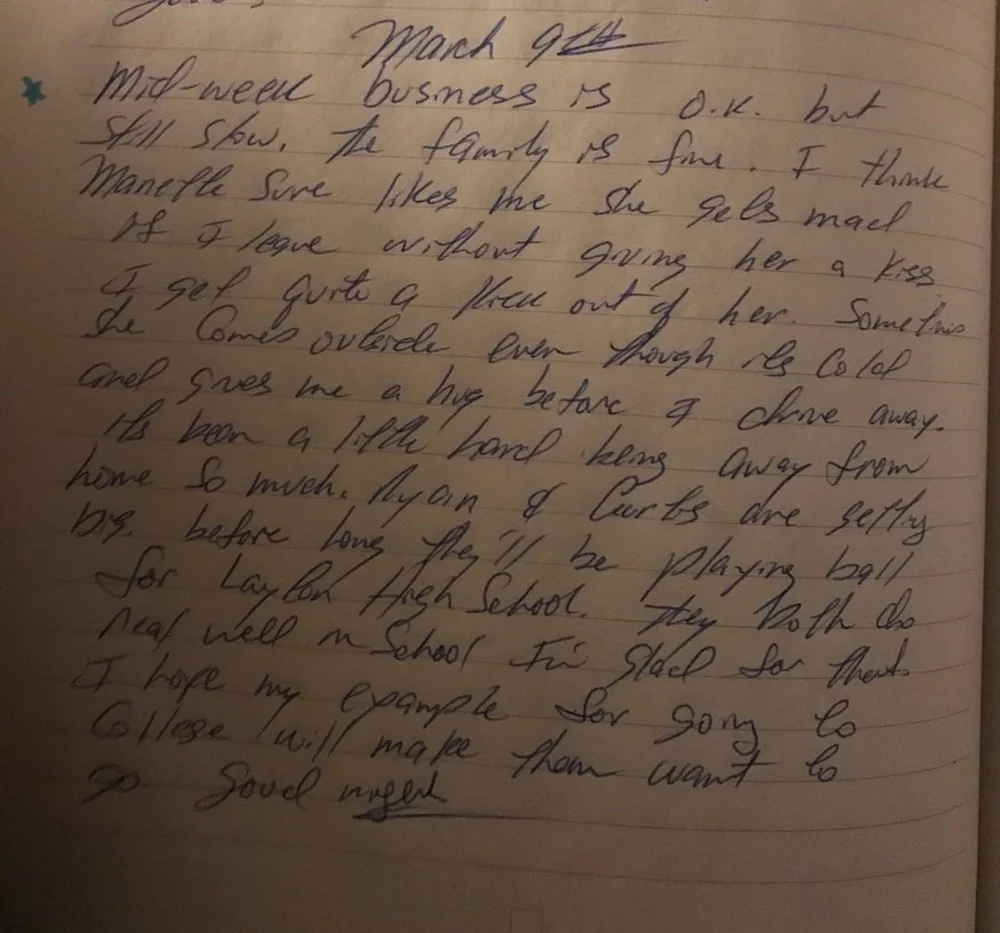 March 9th
Mid-week business is O.K. but
still slow. The family is fine. I think
sure likes me she gets mad
if I leave without giving her a kiss
I get quite a kick out of her. Sometimes
she comes outside even though its cold
and gives me a hug before I drive away.
Its been a little hard being away from
home so much. Ryan & Curtis are getting
big. before long they'll be playing ball
for Layton High School. They both do
real well in School I'm glad for that.
I hope my example for going to
College will make them want to
go. Good night